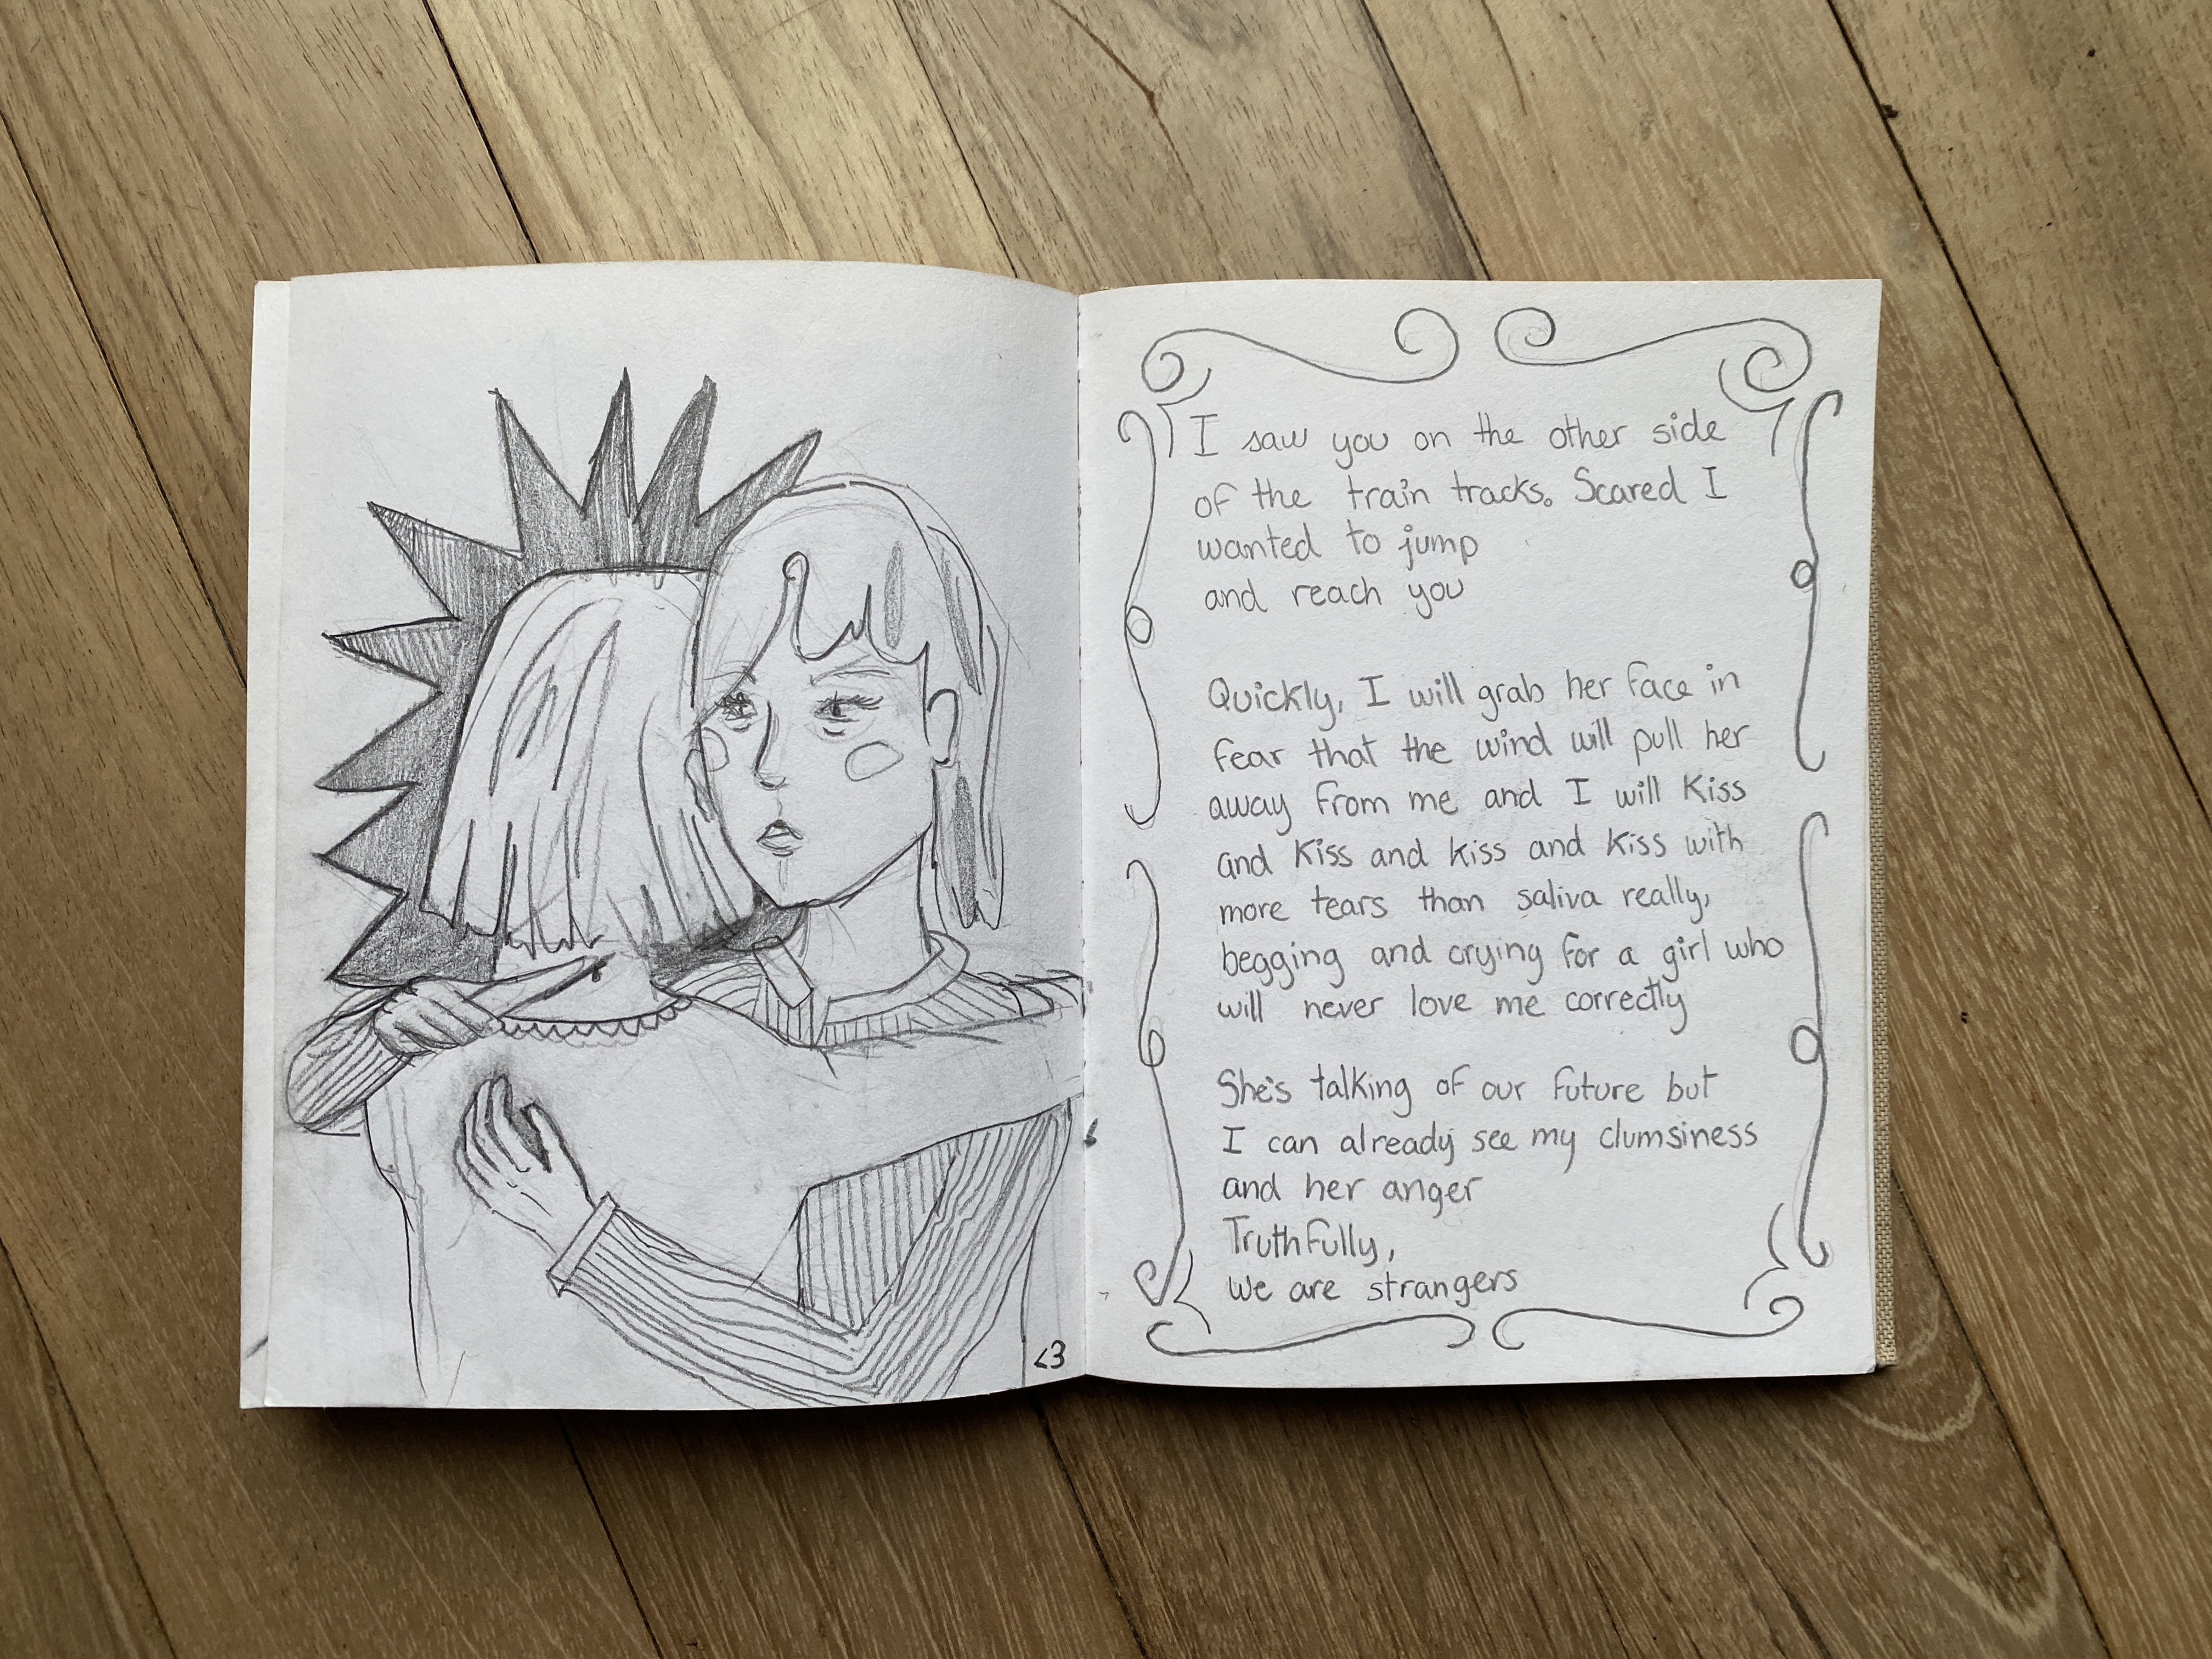 I saw you on the other side
of the train tracks. Scared I
wanted to jump
and reach you
Quickly, I will grab her face in
fear that the wind will pull her
away from me and I will kiss
and kiss and kiss and kiss with
more tears than saliva really,
begging and crying for a girl who
will never love me correctly
She's talking of our future but
I can already see my clumsiness
and her anger
Truthfully,
we are strangers
<3